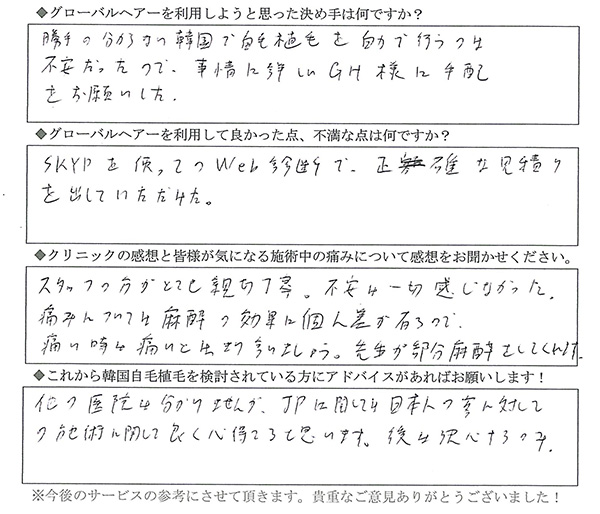 ◆グローバルヘアーを利用しようと思った決め手は何ですか?
勝手の分からない韓国で自毛植毛を自力で行うのは
不安だったので、事情に詳しいGH様に手配
をお願いした。
◆グローバルヘアーを利用して良かった点、不満な点は何ですか?
SKYPを使ってのWeb診断で、正確な見積り
を出していただけた。
◆クリニックの感想と皆様が気になる施術中の痛みについて感想をお聞かせください。
スタッフの方がとても親切丁寧。不安は一切感じなかった。
痛みについては麻酔の効果に個人差が有るので、
痛い時は痛いと言いましょう。先生が部分麻酔をしてくれます。
◆これから韓国自毛植毛を検討されている方にアドバイスがあればお願いします!
他の医院は分かりませんが、JPに関しては日本人の客に対して
の施術に関して良く心得てると思います。後は決心するのみ。
※今後のサービスの参考にさせて頂きます。貴重なご意見ありがとうございました!